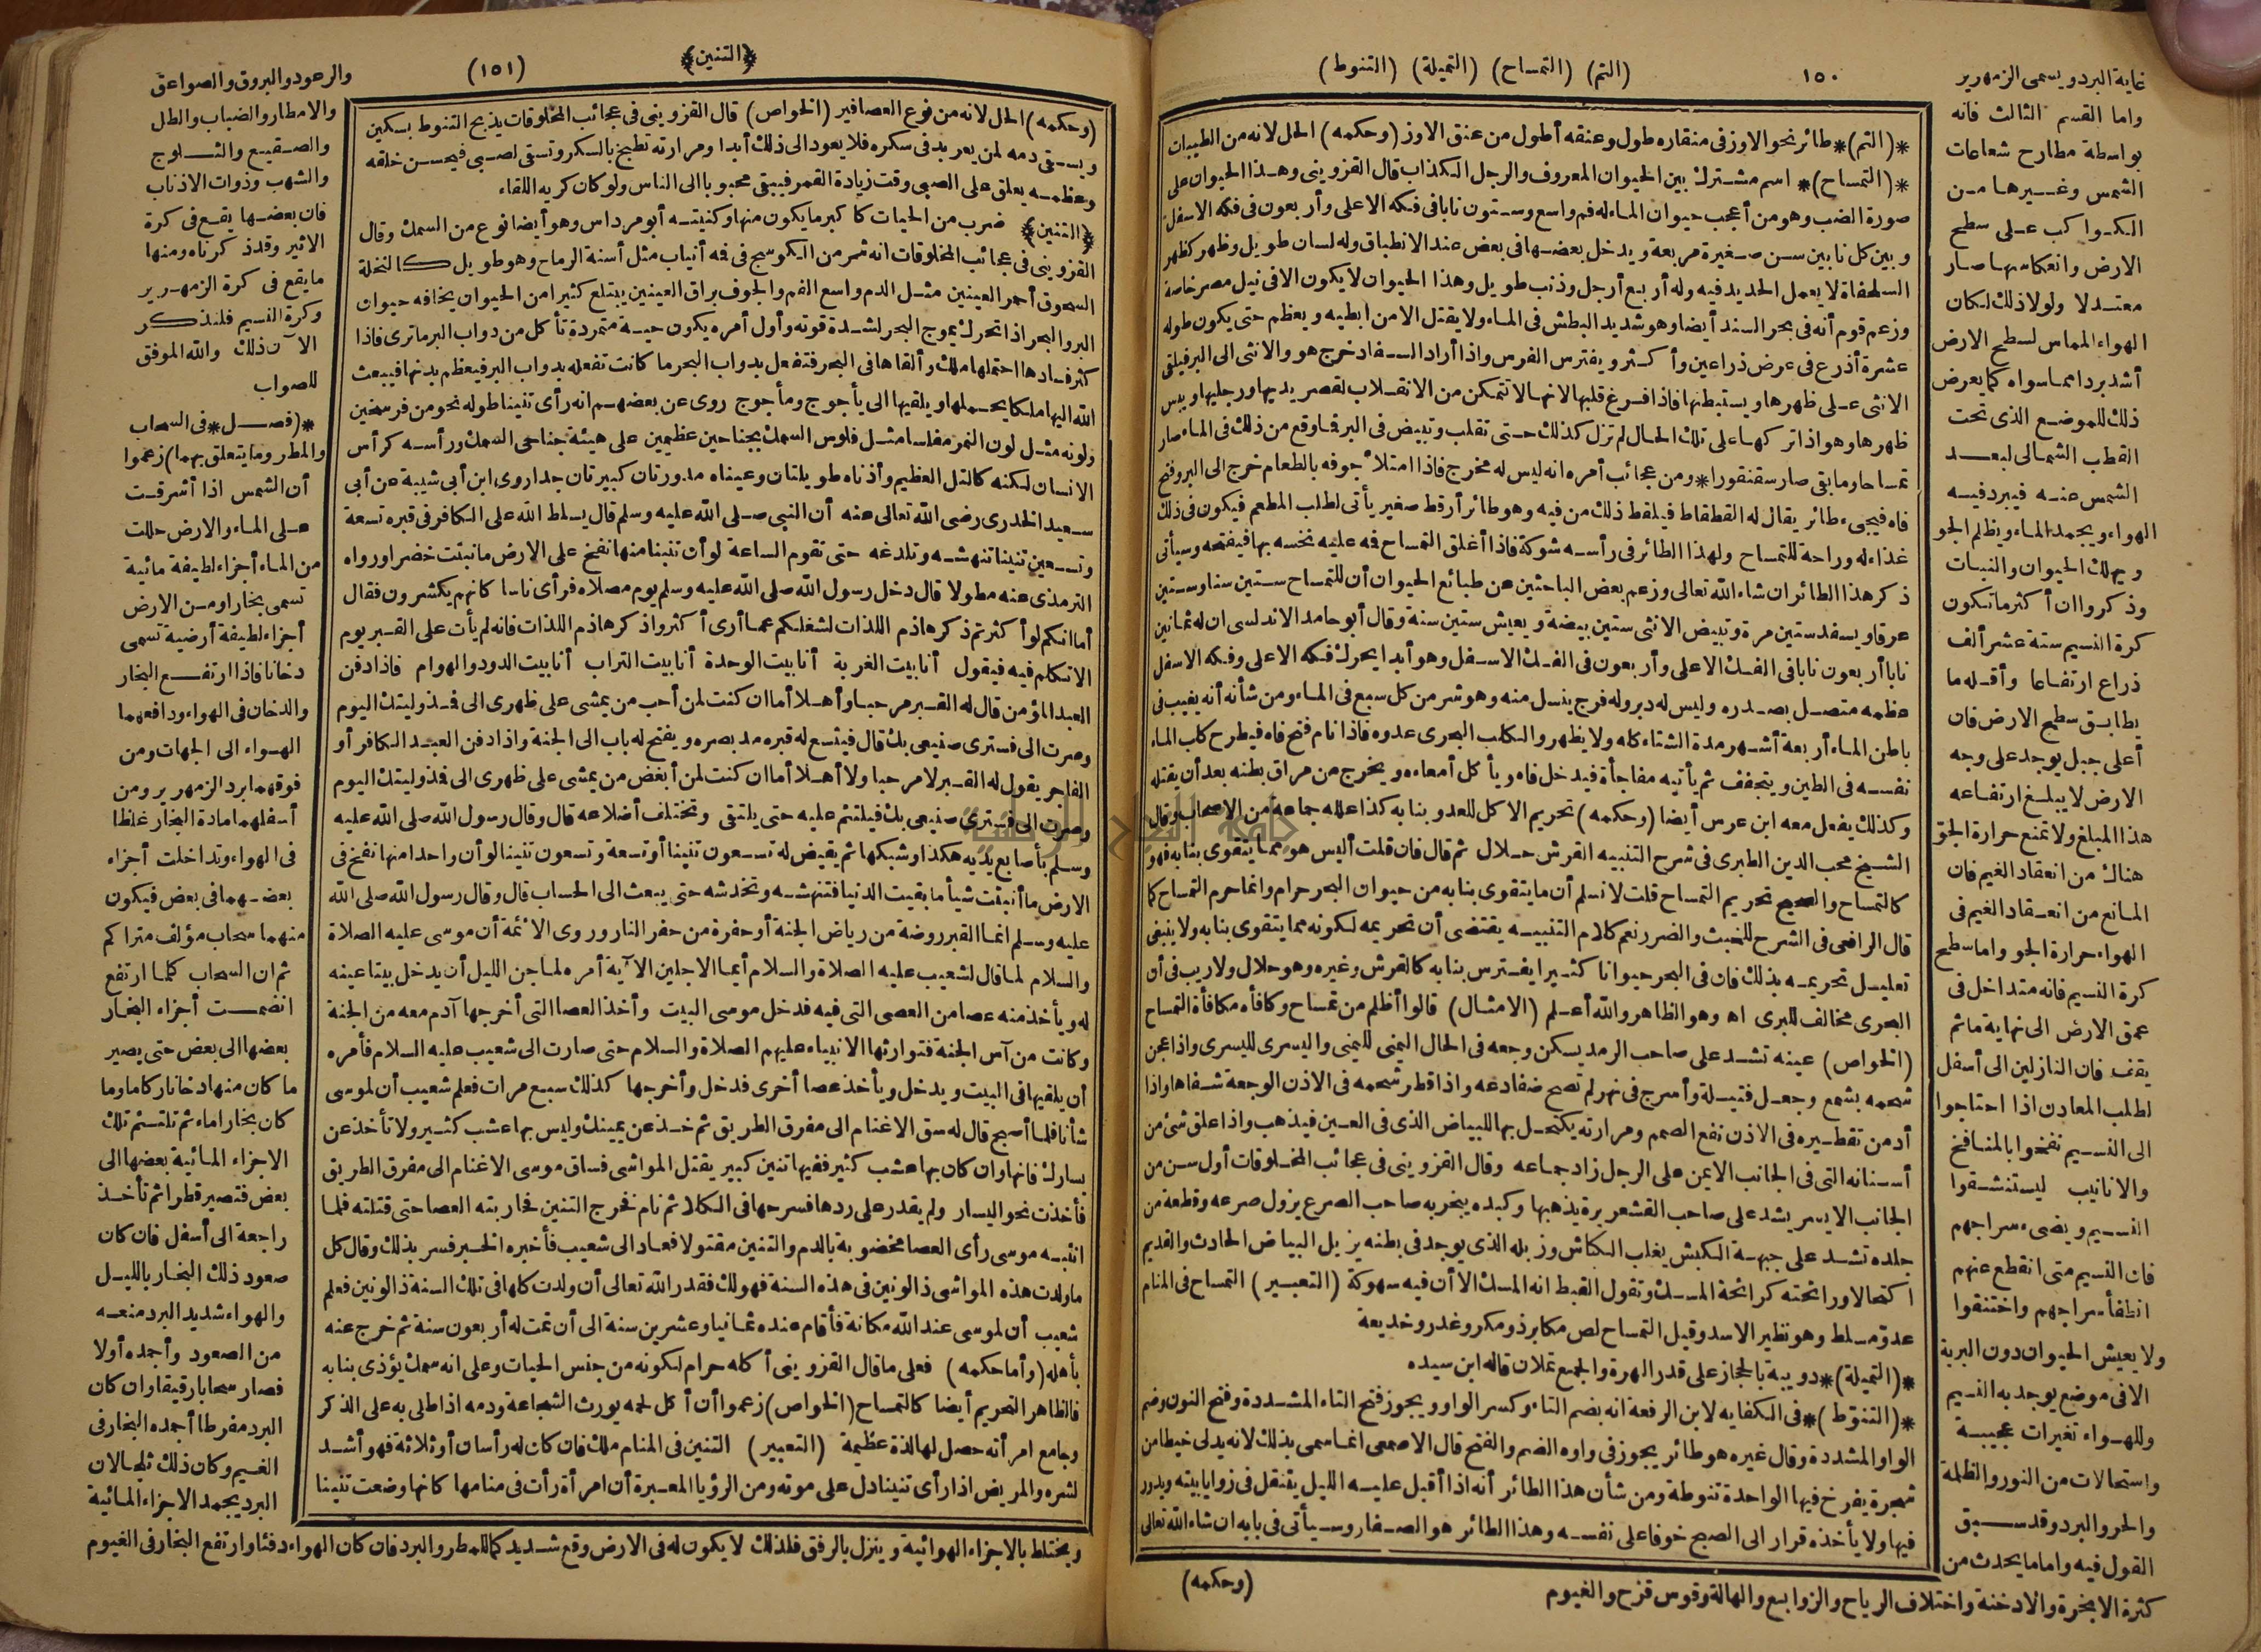 (التم) (التمساح) (التميلة) (التنوط)
١٥٠
*(التم)* طائر نحو الاوز في منقاره طول وعنقه أطول من عنق الاوز (وحكمه) الحل لانه من الطيبات
*(التمساح)* اسم مشترك بين الحيوان المعروف والرجل الكذاب قال القزويني وهذا الحيوان على
صورة الضب وهو من أعجب حيوان الماء له فم واسع وستون نابا في فكه الاعلى وأربعون في فكه الاسفل
وبين كل نابين سن صغيرة مربعة ويدخل بعضها في بعض عند الانطباق وله لسان طويل وظهر كظهر
السلحفاة لا يعمل الحديد فيه وله أربع أرجل وذنب طويل وهذا الحيوان لا يكون الا في نيل مصر خاصة
وزعم قوم أنه في بحر السند أيضا وهو شديد البطش في الماء ولا يقتل الا من ابطيه ويعظم حتى يكون طوله
عشرة أذرع في عرض ذراعين وأكثر ويفترس الفرس واذا أراد السفاد خرج هو والانثى الى البر فيلقي
الانثى على ظهرها ويستبطنها فاذا فرغ قلبها لانها لا تتمكن من الانقلاب لقصر يديها ورجليها ويبس
ظهرها وهو اذا تركها على تلك الحال لم تزل كذلك حتى تقلب وتبيض في البر فما وقع من ذلك في الماء صار
تمساحا وما بقي صار سقنقورا * ومن عجائب أمره انه ليس له مخرج فاذا امتلأ جوفه بالطعام خرج الى البر وفتح
فاه فيجيء طائر يقال له القطقاط فيلقط ذلك من فيه وهو طائر أرقط صغير يأتي لطلب المطعم فيكون في ذلك
غذاء له وراحة للتمساح ولهذا الطائر في رأسه شوكة فاذا أغلق التمساح فه عليه نخسه بها فيفتحه وسيأتي
ذكر هذا الطائر ان شاء الله تعالى وزعم بعض الباحثين عن طبائع الحيوان أن للتمساح ستين سنا وستين
عرقا ويسفد ستين مرة وتبيض الانثى ستين بيضة ويعيش ستين سنة وقال أبو حامد الاندلسي ان له ثمانين
نابا أربعون نابا في الفك الاعلى وأربعون في الفك الاسفل وهو أبدا يحرك فكه الاعلى وفكه الاسفل
عظمه متصل بصدره وليس له دبر وله فرج ينسل منه وهو شر من كل سبع في الماء ومن شأنه أنه يغيب في
باطن الماء أربعة أشهر مدة الشتاء كله ولا يظهر والكلب البحري عدوه فاذا نام فتح فاه فيطرح كلب الماء
نفسه في الطين ويتجفف ثم يأتيه مفاجأة فيدخل فاه ويأكل أمعاءه ويخرج من مراق بطنه بعد أن يقتله
وكذلك يفعل معه ابن عرس أيضا (وحكمه) تحريم الاكل للعدو بنابه كذا علله جماعة من الاصحاب وقال
الشيخ محب الدين الطبري في شرح التنبيه القرش حلال ثم قال فان قلت أليس هو مما يتقوى بنابه فهو
كالتمساح والصحيح تحريم التمساح قلت لا نسلم أن ما يتقوى بنابه من حيوان البحر حرام وانما حرم التمساح كما
قال الرافعي في الشرح للخبث والضرر نعم كلام التنبيه يقتضي أن تحريمه لكونه مما يتقوى بنابه ولا ينبغي
تعليل تحريمه بذلك فان في البحر حيوانا كثيرا يفترس بنابه كالقرش وغيره وهو حلال ولا ريب في أن
البحري مخالف للبري اه وهو الظاهر والله أعلم (الامثال) قالوا أظلم من تمساح وكافأه مكافأة التمساح
(الخواص) عينه تشد على صاحب الرمد يسكن وجعه في الحال اليمنى لليمنى واليسرى لليسرى واذا عجن
شحمه بشمع وجعل فتيلة وأسرج في نهر لم تصح ضفادعه واذا قطر شحمه في الاذن الوجعة شفاها واذا
أدمن تقطيره في الاذن نفع الصمم ومرارته يكتحل بها للبياض الذي في العين فيذهب واذا علق شئ من
أسنانه التي في الجانب الايمن على الرجل زاد جماعه وقال القزويني في عجائب المخلوقات أول سن من
الجانب الايسر يشد على صاحب القشعريرة يذهبها وكبده يبخر به صاحب الصرع يزول صرعه وقطعة من
جلده تشد على جبهة الكبش يغلب الكباش وزبله الذي يوجد في بطنه يزيل البياض الحادث والقديم
اكتحالا ورائحته كرائحة المسك وتقول القبط انه المسك الا أن فيه سهوكة (التعبير) التمساح في المنام
عدو مسلط وهو نظير الاسد وقيل التمساح لص مكابر ذو مكر وغدر وخديعة
*(التميلة)* دويبة بالحجاز على قدر الهرة والجمع تملان قاله ابن سيده
*(التنوّط)* في الكفايه لابن الرفعة انه بضم التاء وكسر الواو ويجوز فتح التاء المشددة وفتح النون وضم
الواو المشددة وقال غيره هو طائر يجوز في واوه الضم والفتح قال الاصمعي انما سمى بذلك لانه يدلي خيطا من
شجرة يفرخ فيها الواحدة تنوطة ومن شأن هذا الطائر أنه اذا أقبل عليه الليل يتنقل في زوايا بيته ويدور
فيها ولا يأخذه قرار الى الصبح خوفا على نفسه وهذا الطائر هو الصفار وسيأتي في بابه ان شاء الله تعالى
(وحكمه)
غاية البرد ويسمى الزمهرير
واما القسم الثالث فانه
بواسطة مطارح شعاعات
الشمس وغيرها من
الكواكب على سطح
الارض وانعكاسها صار
معتدلا ولولا ذلك لكان
الهواء المماس لسطح الارض
أشد بردا مما سواه كما يعرض
ذلك للموضع الذي تحت
القطب الشمالي لبعد
الشمس عنه فيبرد فيه
الهواء ويجمد الماء ويظلم الجو
ويهلك الحيوان والنبات
وذكروا ان أكثر ما تكون
كرة النسيم ستة عشر ألف
ذراع ارتفاعا وأقله ما
يطابق سطح الارض فان
أعلى جبل يوجد على وجه
الارض لا يبلغ ارتفاعه
هذا المبلغ ولا تمنع حرارة الجو
هناك من انعقاد الغيم فان
المانع من انعقاد الغيم في
الهواء حرارة الجو واما سطح
كرة النسيم فانه متداخل في
عمق الارض الى نهاية ما ثم
يقف فان النازلين الى أسفل
لطلب المعادن اذا احتاجوا
الى النسيم نفخوا بالمنافخ
والانابيب ليستنشقوا
النسيم ويضيء سراجهم
فان النسيم متى انقطع عنهم
انطفأ سراجهم واختنقوا
ولا يعيش الحيوان دون البرية
الا في موضع يوجد به النسيم
وللهواء تغيرات عجيبة
واستحالات من النور والظلمة
والحر والبرد وقد سبق
القول فيه واما ما يحدث من
كثرة الابخرة والادخنة واختلاف الرياح والزوابع والهالة وقوس قزح والغيوم
﴿التنين﴾
(١٥١)
(وحكمه) الحل لانه من نوع العصافير (الخواص) قال القزويني في عجائب المخلوقات يذبح التنوط بسكين
ويسقى دمه لمن يعربد في سكره فلا يعود الى ذلك أبدا ومرارته تطبخ بالسكر وتسقى لصبي فيحسن خلقه
وعظمه يعلق على الصبي وقت زيادة القمر فيبقى محبوبا الى الناس ولو كان كريه اللقاء
﴿التنين﴾ ضرب من الحيات كأكبر ما يكون منها وكنيته أبو مرداس وهو أيضا نوع من السمك وقال
القزويني في عجائب المخلوقات انه شر من الكوسج في فه أنياب مثل أسنة الرماح وهو طويل كالنخلة
السحوق أحمر العينين مثل الدم واسع الفم والجوف براق العينين يبتلع كثيرا من الحيوان يخافه حيوان
البر والبحر اذا تحرك يموج البحر لشدة قوته وأول أمره يكون حية متمردة تأكل من دواب البر ما ترى فاذا
كثر فسادها احتملها ملك وألقاها في البحر فتفعل بدواب البحر ما كانت تفعله بدواب البر فيعظم بدنها فيبعث
الله اليها ملكا يحملها ويلقيها الى يأجوج ومأجوج روى عن بعضهم انه رأى تنينا طوله نحو من فرسخين
ولونه مثل لون النمر مفلسا مثل فلوس السمك بجناحين عظيمين على هيئة جناحي السمك ورأسه كرأس
الانسان لكنه كالتل العظيم وأذناه طويلتان وعيناه مدورتان كبيرتان جدا روى ابن أبي شيبة عن أبي
سعيد الخدري رضي الله تعالى عنه أن النبي صلى الله عليه وسلم قال يسلط الله على الكافر في قبره تسعة
وتسعين تنينا تنهشه وتلدغه حتى تقوم الساعة لو أن تنينا منها نفخ على الارض ما نبتت خضرا ورواه
الترمذي عنه مطولا قال دخل رسول الله صلى الله عليه وسلم يوم مصلاه فرأى ناسا كأنهم يكشرون فقال
أما انكم لو أكثرتم ذكر هاذم اللذات لشغلكم عما أرى أكثروا ذكر هاذم اللذات فانه لم يأت على القبر يوم
الا تكلم فيه فيقول أنا بيت الغربة أنا بيت الوحدة أنا بيت التراب أنا بيت الدود والهوام فاذا دفن
العبد المؤمن قال له القبر مرحبا وأهلا أما ان كنت لمن أحب من يمشي على ظهري الى فذ وليتك اليوم
وصرت الى فسترى صنيعي بك قال فيتسع له قبره مد بصره ويفتح له باب الى الجنة واذا دفن العبد الكافر أو
الفاجر يقول له القبر لا مرحبا ولا أهلا أما ان كنت لمن أبغض من يمشي على ظهري الى فذ وليتك اليوم
وصرت الى فسترى صنيعي بك فيلتئم عليه حتى يلتقي وتختلف أضلاعه قال وقال رسول الله صلى الله عليه
وسلم بأصابع يديه هكذا وشبكها ثم يقيض له تسعون تنينا أو تسعة وتسعون تنينا لو أن واحدا منها نفخ في
الارض ما أنبتت شيأ ما بقيت الدنيا فتنهشه وتخدشه حتى يبعث الى الحساب قال وقال رسول الله صلى الله
عليه وسلم انما القبر روضة من رياض الجنة أو حفرة من حفر النار وروى الأئمة أن موسى عليه الصلاة
والسلام لما قال لشعيب عليه الصلاة والسلام أيما الاجلين الآية أمره لما جن الليل أن يدخل بيتا عينه
له ويأخذ منه عصا من العصي التي فيه فدخل موسى البيت وأخذ العصا التي أخرجها آدم معه من الجنة
وكانت من آس الجنة فتوارثها الانبياء عليهم الصلاة والسلام حتى صارت الى شعيب عليه السلام فأمره
أن يلقيها في البيت ويدخل ويأخذ عصا أخرى فدخل وأخرجها كذلك سبع مرات فعلم شعيب أن لموسى
شأنا فلما أصبح قال له سق الاغنام الى مفرق الطريق ثم خذ عن يمينك وليس بها عشب كثير ولا تأخذ عن
يسارك فانها وان كان بها عشب كثير ففيها تنين كبير يقتل المواشي فساق موسى الاغنام الى مفرق الطريق
فأخذت نحو اليسار ولم يقدر على ردها فسرحها في الكلا ثم نام فخرج التنين فحاربته العصا حتى قتلته فلما
انتبه موسى رأى العصا مخضوبة بالدم والتنين مقتولا فعاد الى شعيب فأخبره الخبر فسر بذلك وقال كل
ما ولدت هذه المواشي ذا لونين في هذه السنة فهو لك فقدر الله تعالى أن ولدت كلها في تلك السنة ذا لونين فعلم
شعيب أن لموسى عند الله مكانة فأقام عنده ثمانيا وعشرين سنة الى أن تمت له أربعون سنة ثم خرج عنه
بأهله (وأما حكمه) فعلى ما قال القزويني أكله حرام لكونه من جنس الحيات وعلى انه سمك يؤذي بنابه
فالظاهر التحريم أيضا كالتمساح (الخواص) زعموا أن أكل لحمه يورث الشجاعة ودمه اذا طلى به على الذكر
وجامع امرأته حصل لها لذة عظيمة (التعبير) التنين في المنام ملك فان كان له رأسان أو ثلاثة فهو أشد
لشره والمريض اذا رأى تنينا دل على موته ومن الرؤيا المعبرة أن امرأة رأت في منامها كأنها وضعت تنينا
والرعود والبروق والصواعق
والامطار والضباب والطل
والصقيع والثلوج
والشهب وذوات الاذناب
فان بعضها يقع في كرة
الاثير وقد ذكرناه ومنها
ما يقع في كرة الزمهرير
وكرة النسيم فلنذكر
الآن ذلك والله الموفق
للصواب
*(فصل* في السحاب
والمطر وما يتعلق بهما) زعموا
أن الشمس اذا أشرقت
على الماء والارض حللت
من الماء أجزاء لطيفة مائية
تسمى بخارا ومن الارض
أجزاء لطيفة أرضية تسمى
دخانا فاذا ارتفع البخار
والدخان في الهواء ودافعهما
الهواء الى الجهات ومن
فوقهما برد الزمهرير ومن
أسفلهما مادة البخار غلظا
في الهواء وتداخلت أجزاء
بعضهما في بعض فيكون
منهما سحاب مؤلف متراكم
ثم ان السحاب كلما ارتفع
انضمت أجزاء البخار
بعضها الى بعض حتى يصير
ما كان منها دخانا ركاما وما
كان بخارا ماء ثم تلتئم تلك
الاجزاء المائية بعضها الى
بعض فتصير قطرا ثم تأخذ
راجعة الى أسفل فان كان
صعود ذلك البخار بالليل
والهواء شديد البرد منعه
من الصعود وأجمده أولا
فصار سحابا رقيقا وان كان
البرد مفرطا أجمده البخار في
الغيم وكان ذلك ثلجا لان
البرد يجمد الاجزاء المائية
ويختلط بالاجزاء الهوائية وينزل بالرفق فلذلك لا يكون له في الارض وقع شديد كما للمطر والبرد فان كان الهواء دفئا وارتفع البخار في الغيوم